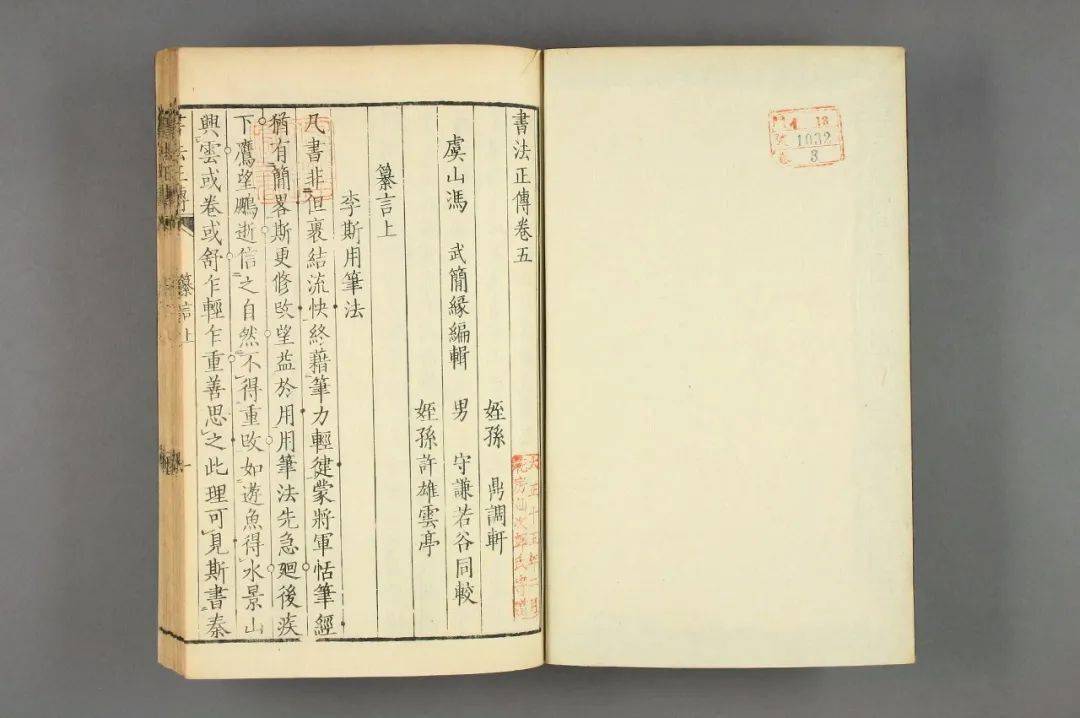 書法正傳卷五
虞山馮 武簡緣編輯
姪孫 鼎調軒
男 守謙若谷同較
姪孫許雄雲亭
纂言上
李斯用筆法
凡書非但裹結流快終藉筆力輕健蒙將軍恬筆經
猶有簡畧斯更修改望益於用用筆法先急廻後疾
下鷹望鵬逝信之自然不得重改如遊魚得水景山
興雲或卷或舒乍輕乍重善思之此理可見斯書秦
書法正傳
纂言上
一
18
1032
3
大正十五年二月